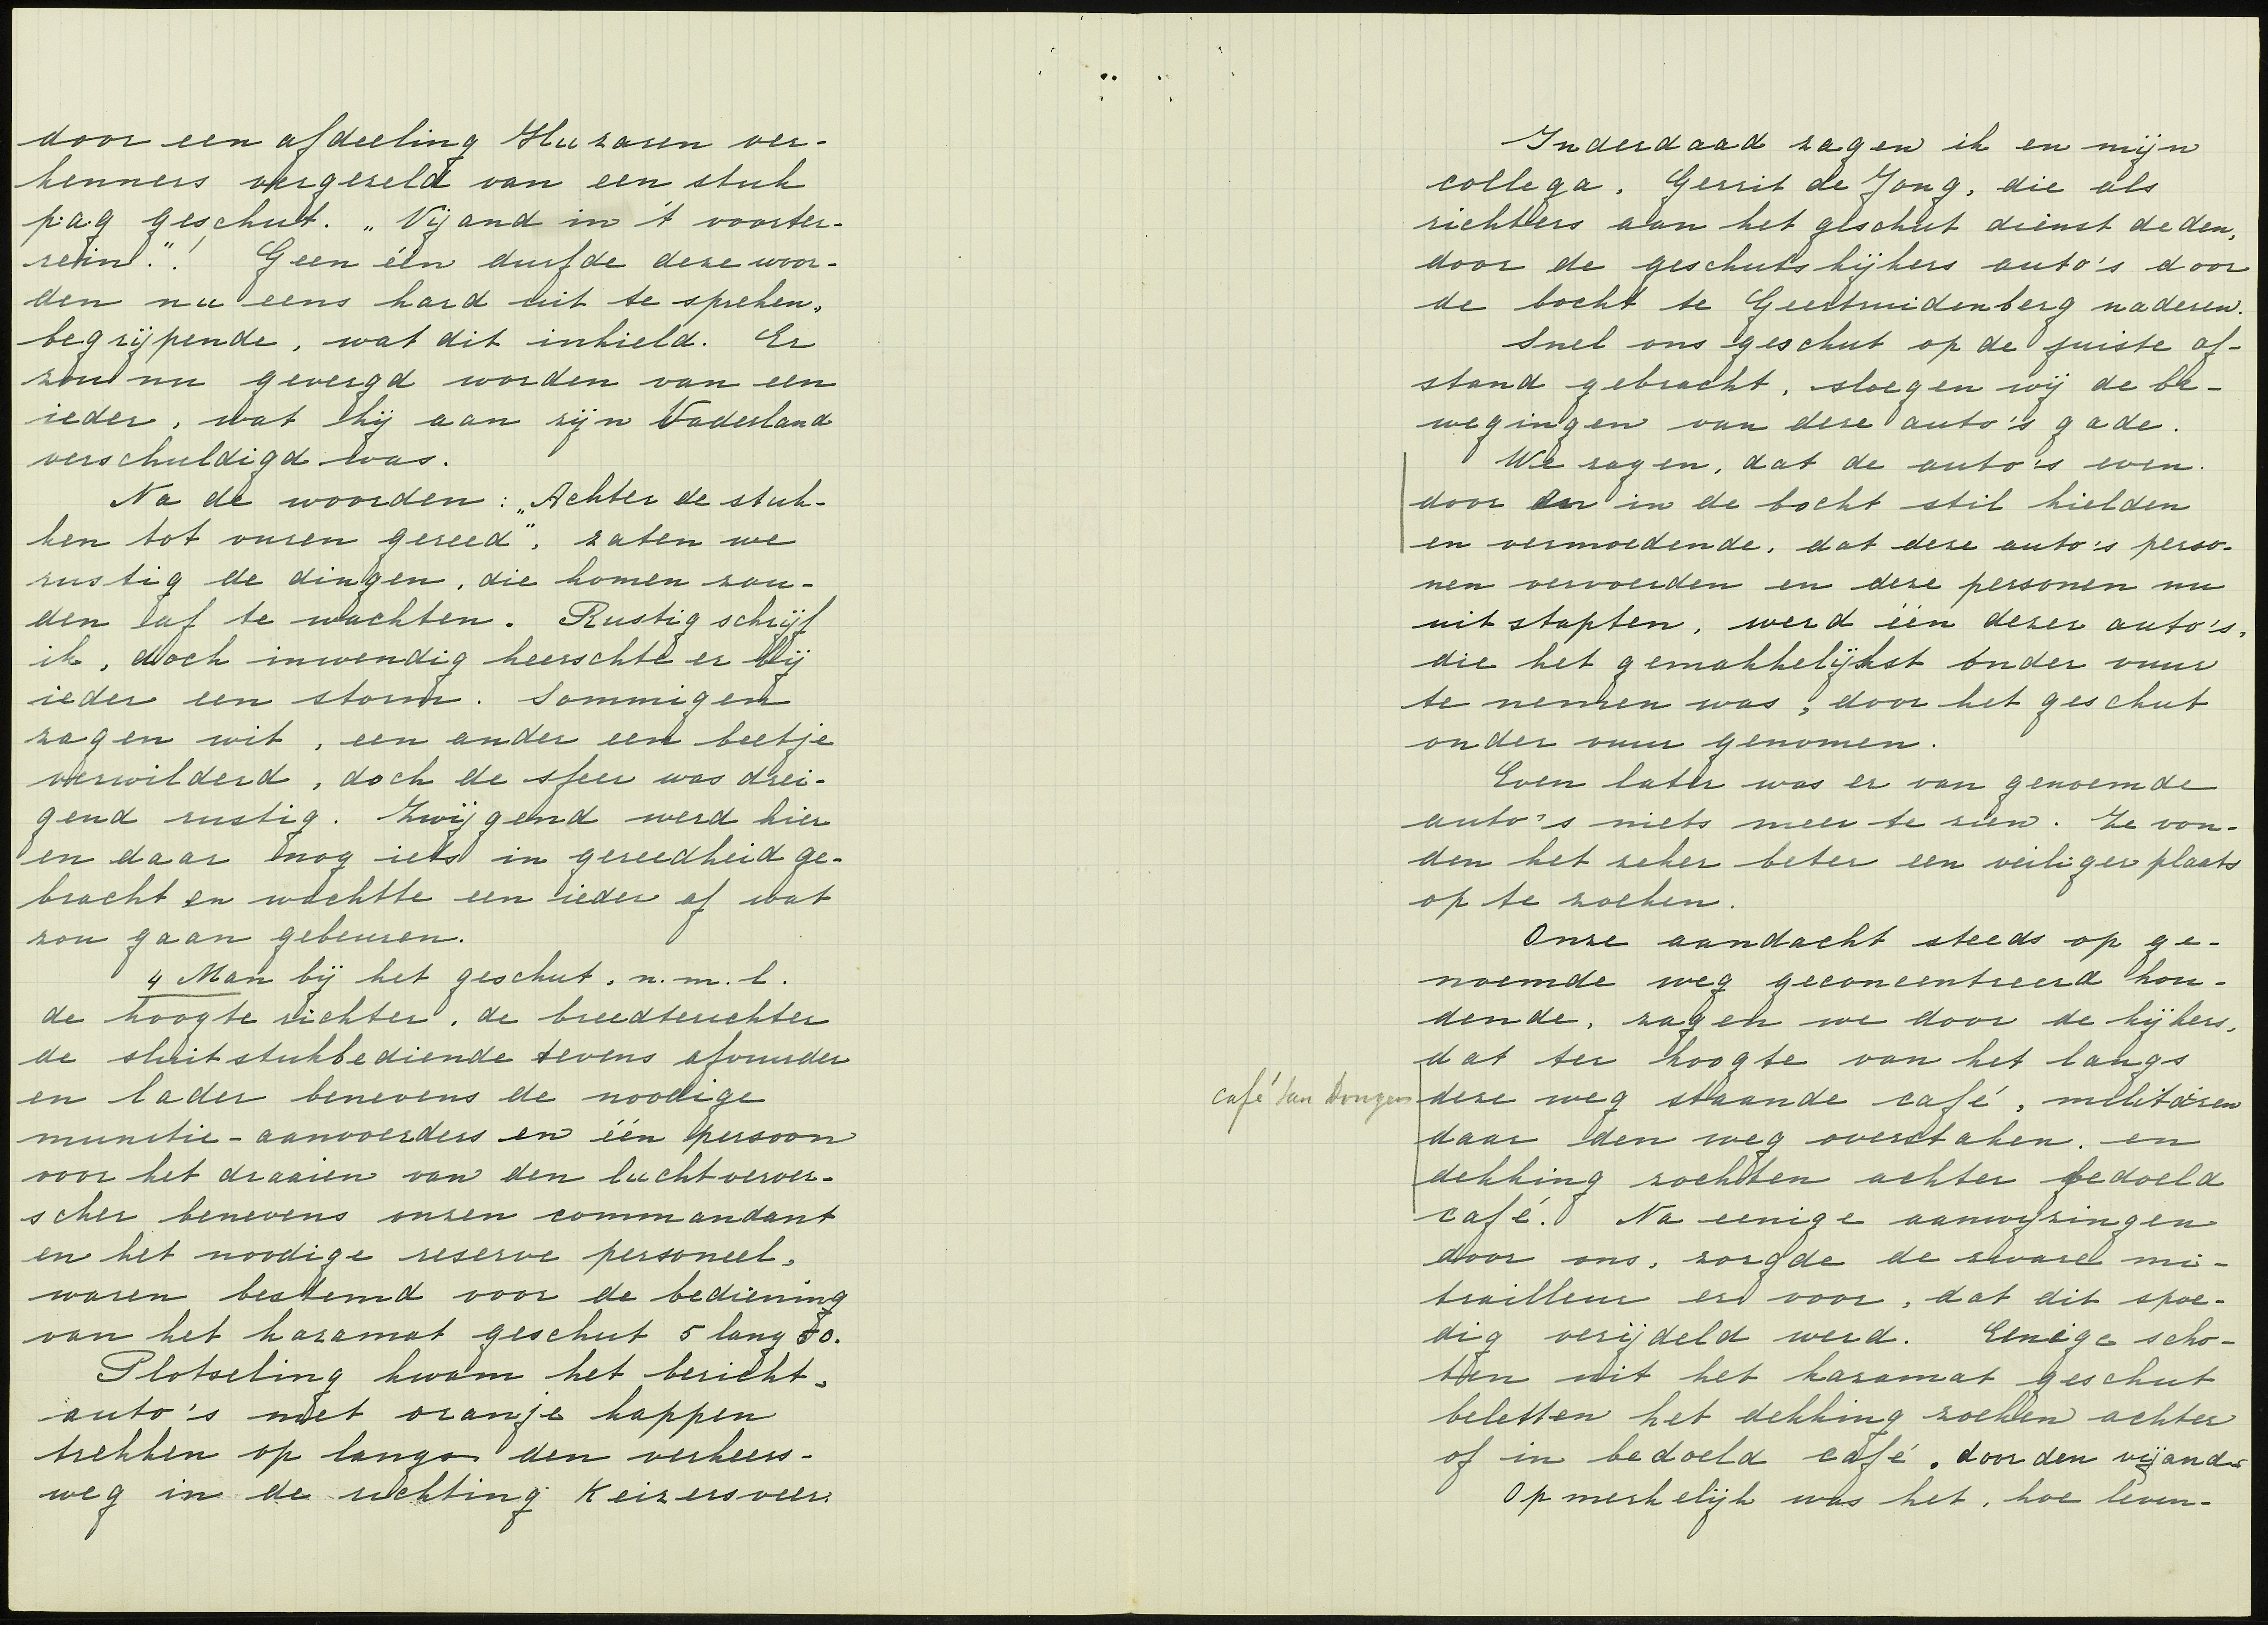 door een afdeeling Huzaren ver-
kenners vergezeld van een stuk
p.a.g geschut. „Vijand in 't voorter-
rein."! Geen één durfde deze woor-
den nu eens hard uit te spreken,
begrijpende, wat dit inhield. Er
zou nu gevergd worden van een
ieder, wat hij aan zijn Vaderland
verschuldigd was.
Na de woorden: „Achter de stuk-
ken tot vuren gereed", zaten we
rustig de dingen, die komen zou-
den af te wachten. Rustig schrijf
ik, doch inwendig heerschte er bij
ieder een storm. Sommigen
zagen wit, een ander een beetje
verwilderd, doch de sfeer was drei-
gend rustig. Zwijgend werd hier
en daar nog iets in gereedheid ge-
bracht en wachtte een ieder af wat
zou gaan gebeuren.
4 Man bij het geschut, n.m.l.
de hoogte richter, de breedterichter
de sluitstukbediende tevens afvuurder
en lader benevens de noodige
munitie-aanvoerders en één persoon
voor het draaien van den luchtverver-
scher benevens onzen commandant
en het noodige reserve personeel,
waren bestemd voor de bediening
van het kazamat geschut 5 lang 50.
Plotseling kwam het bericht,
auto's met oranje kappen
trekken op langs den verkeers-
weg in de richting Keizersveer.
Inderdaad zagen ik en mijn
collega, Gerrit de Jong, die als
richters aan het geschut dienst deden,
door de geschutskijkers auto's door
de bocht te Geertruidenberg naderen.
Snel ons geschut op de juiste af-
stand gebracht, sloegen wij de be-
wegingen van deze auto's gade.
We zagen, dat de auto's even
door in de bocht stil hielden
en vermoedende, dat deze auto's perso-
nen vervoerden en deze personen nu
uitstapten, werd één dezer auto's,
die het gemakkelijkst onder vuur
te nemen was, door het geschut
onder vuur genomen.
Even later was er van genoemde
auto's niets meer te zien. Ze von-
den het zeker beter een veiliger plaats
op te zoeken.
Onze aandacht steeds op ge-
noemde weg geconcentreerd hou-
dende, zagen we door de kijkers,
dat ter hoogte van het langs
café van Dongen
deze weg staande café, militairen
daar den weg overstaken, en
dekking zochten achter bedoeld
café. Na eenige aanwijzingen
door ons, zorgde de zware mi-
trailleur er voor, dat dit spoe-
dig verijdeld werd. Eenige scho-
ten uit het kazamat geschut
beletten het dekking zoeken achter
of in bedoeld café, door den vijand.
Opmerkelijk was het, hoe leven-